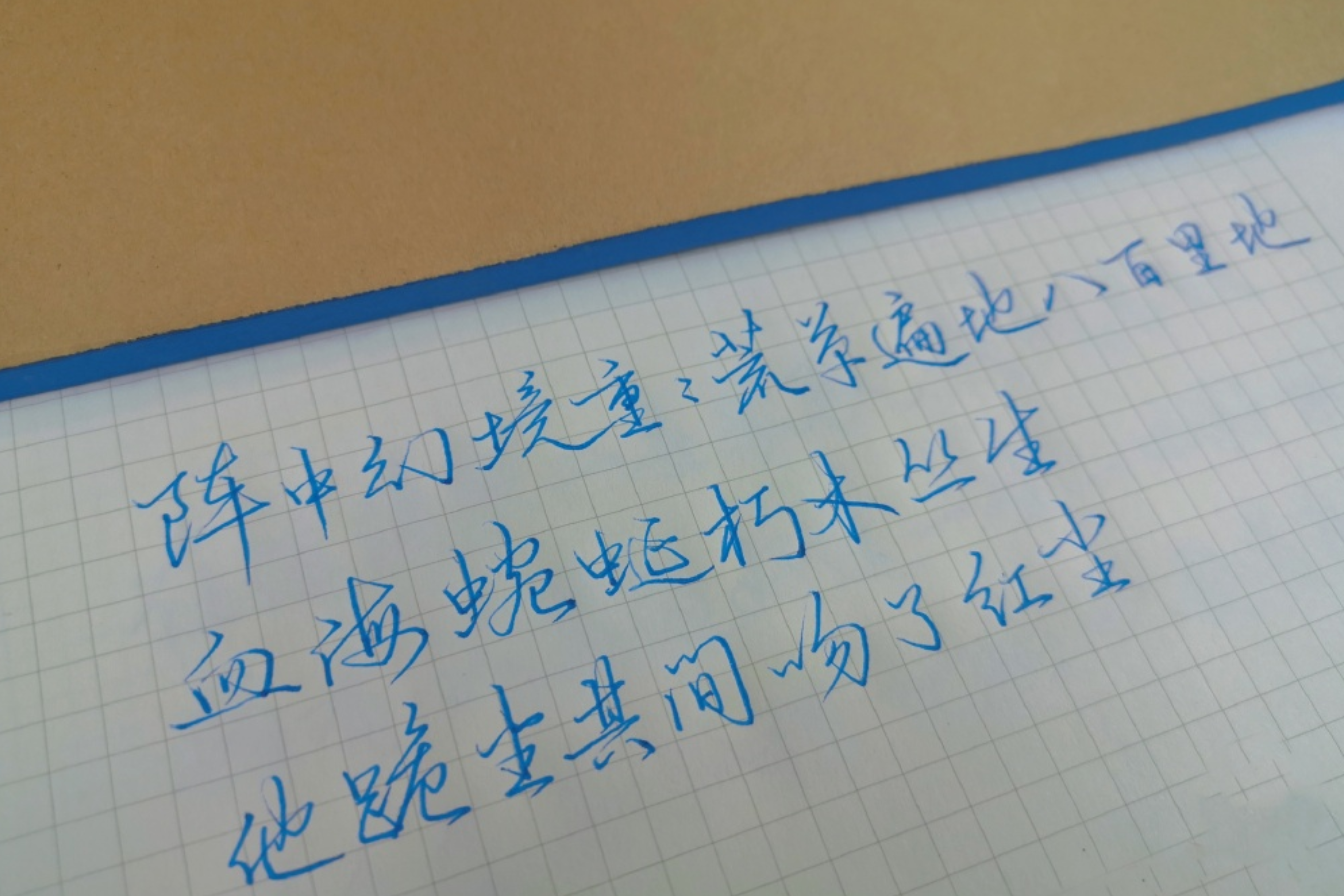 阵中幻境重:荒草遍地八百里地
血海蜿蜒朽木丛生
他跪坐其间吻了红尘